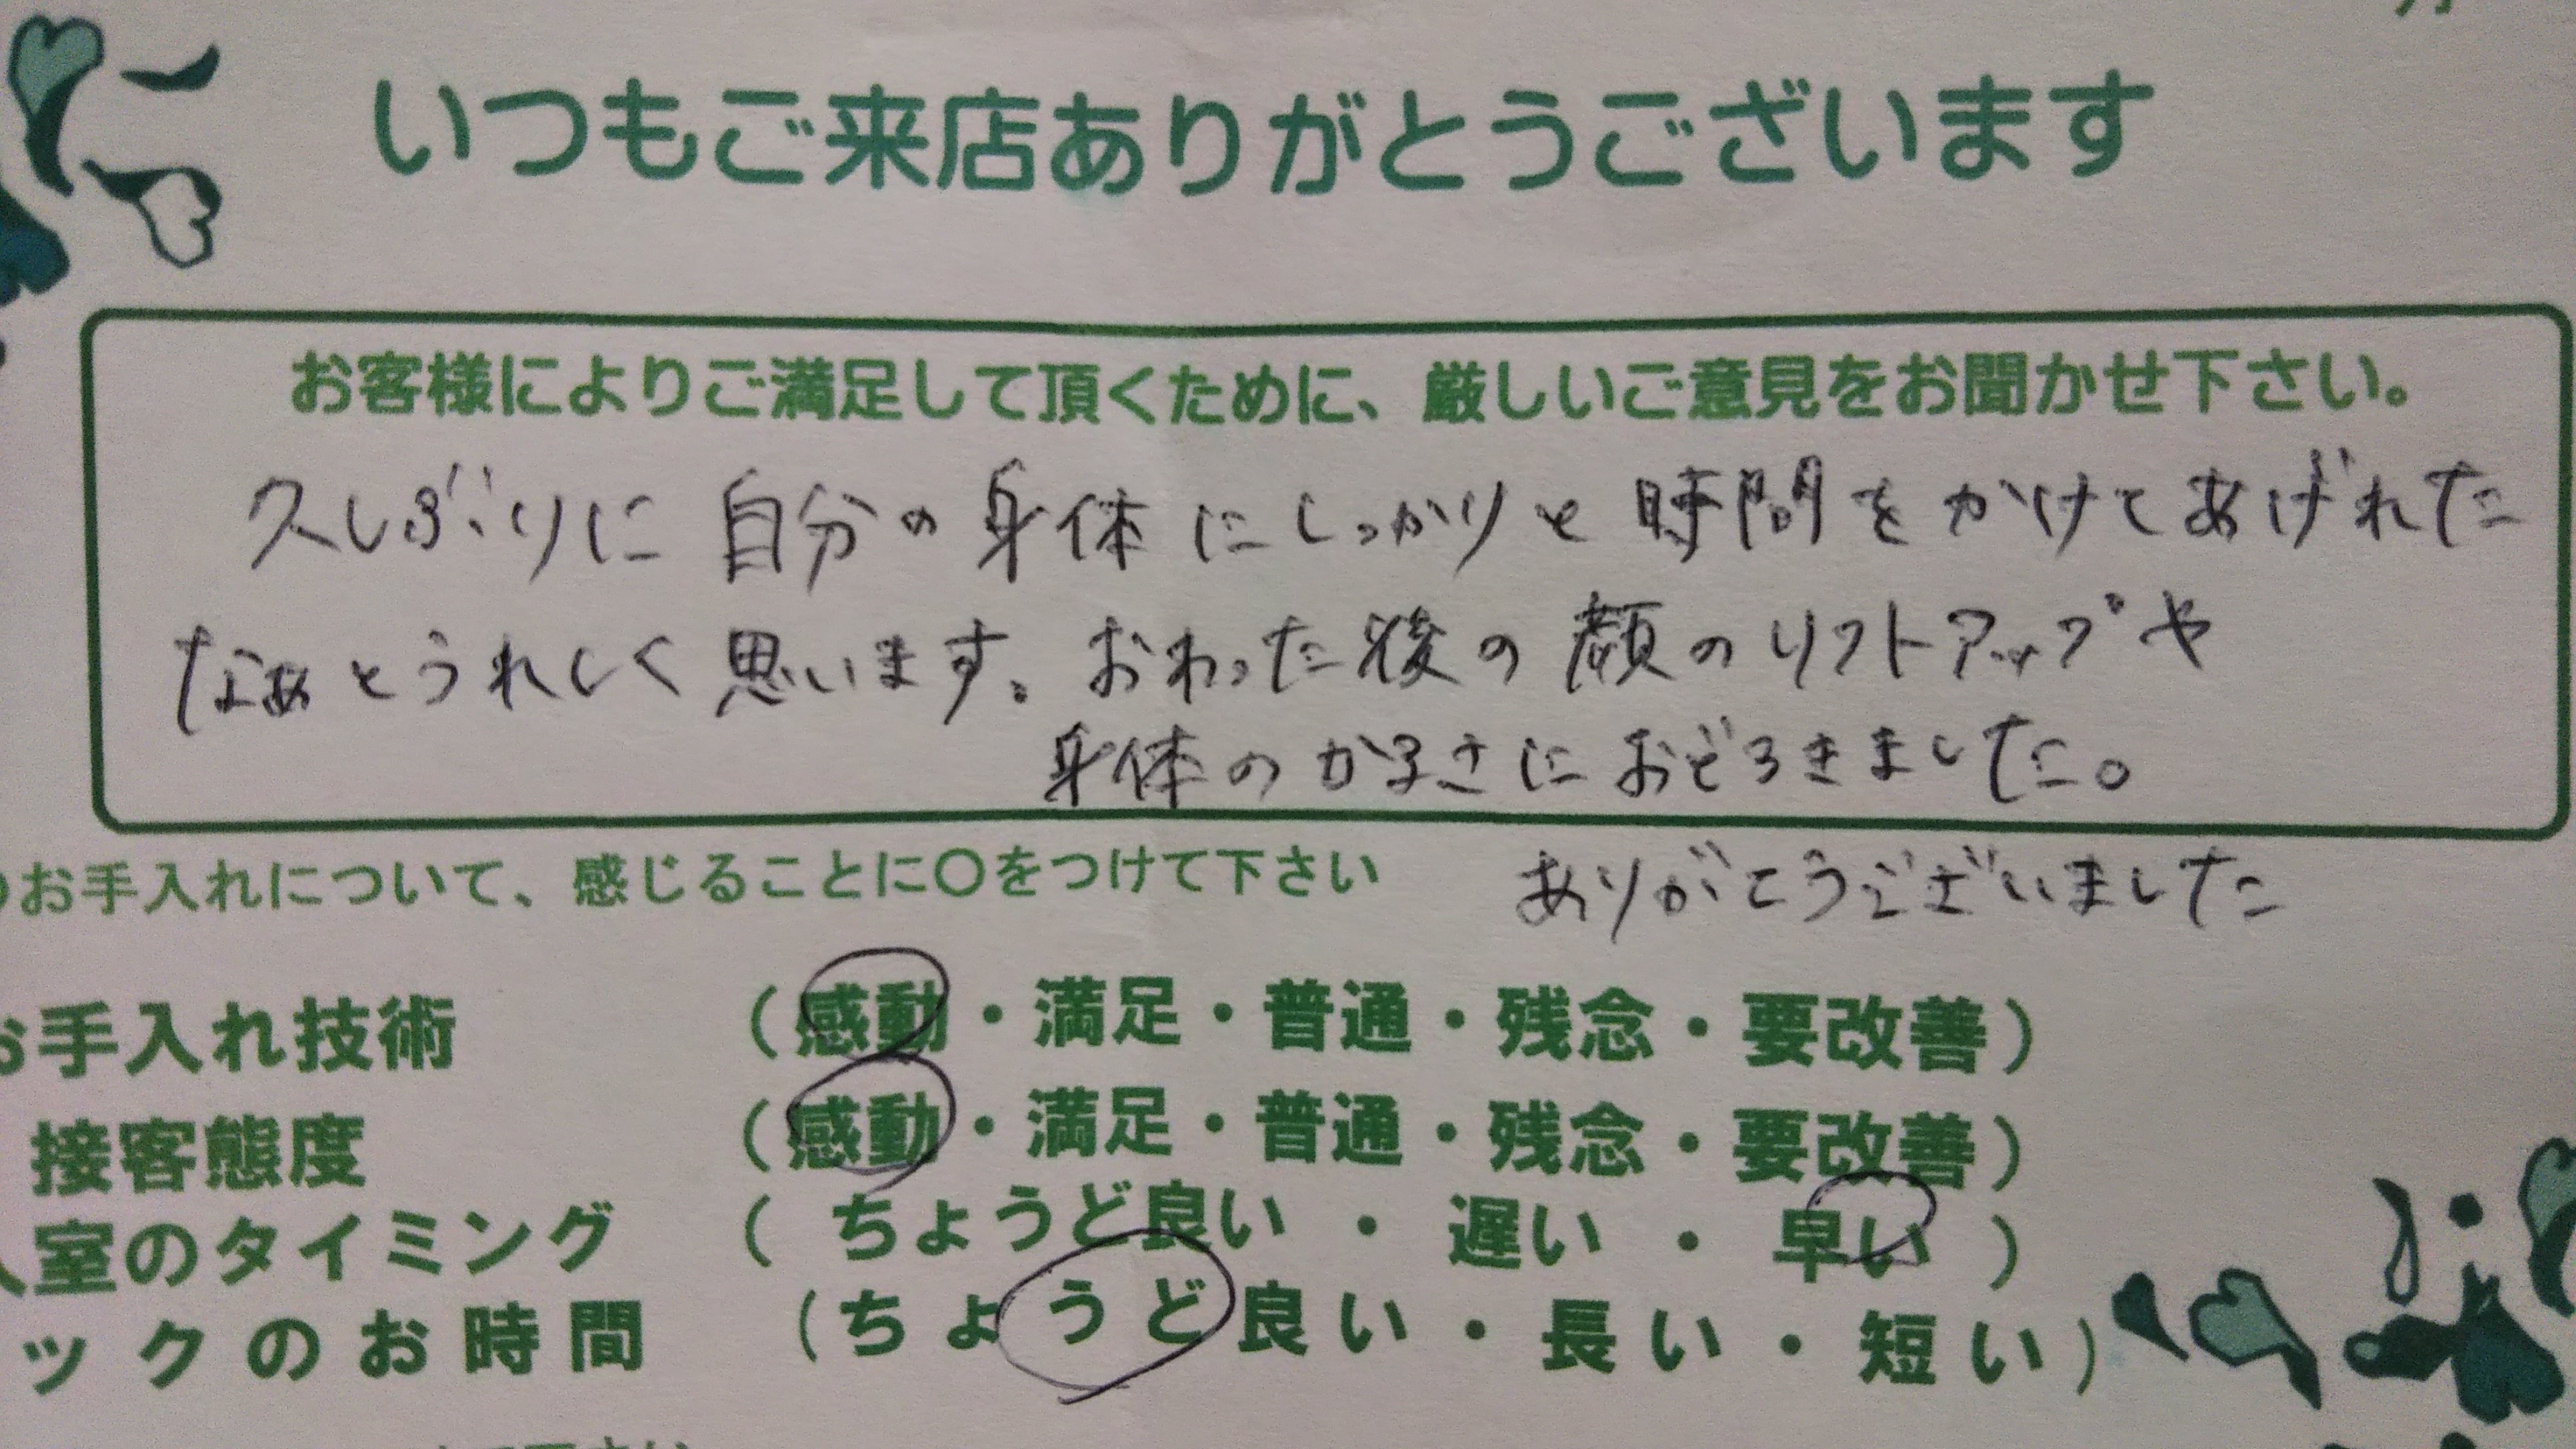 いつもご来店ありがとうございます
お客様によりご満足して頂くために、厳しいご意見をお聞かせ下さい。
久しぶりに自分の身体にしっかりと時間をかけてあげれた
なぁとうれしく思います。おわった後の顔のリフトアップや
身体のかるさにおどろきました。
お手入れについて、感じることに〇をつけて下さい
ありがとうございました
お手入れ技術 (感動・満足・普通・残念・要改善)
接客態度 (感動・満足・普通・残念・要改善)
室のタイミング (ちょうど良い・遅い・早い)
ックのお時間 (ちょうど良い・長い・短い)